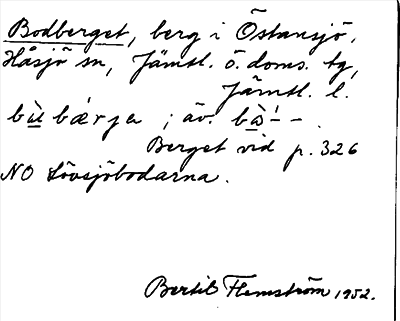 Bodberget, berg i Östansjö,
Håsjö sn, Jämtl. ö. doms. tg,
Jämtl. l.
bu̠̇ bǽrjɐ ; äv. bà̠ ́– –.
Berget vid p. 326
NO Lövsjöbodarna.
Bertil Flemström 1952.